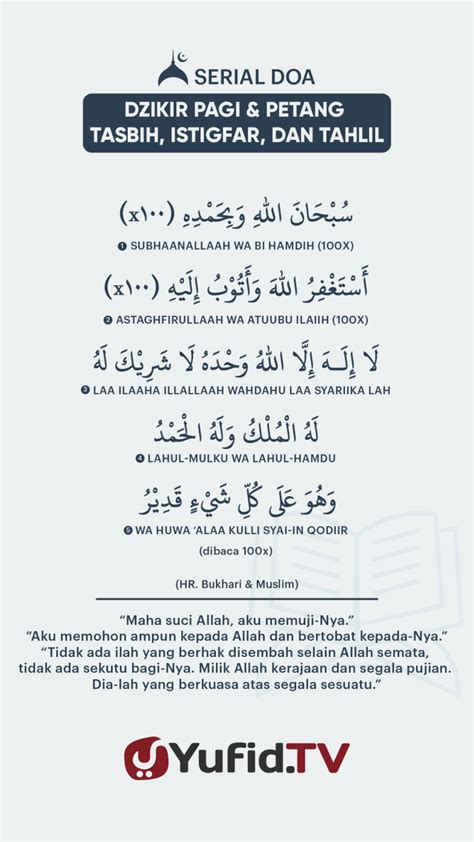 SERIAL DOA
DZIKIR PAGI & PETANG
TASBIH, ISTIGFAR, DAN TAHLIL
سُبْحَانَ اللهِ وَبِحَمْدِهِ (١٠٠x)
❶ SUBHAANALLAAH WA BI HAMDIH (100X)
أَسْتَغْفِرُ اللهَ وَأَتُوْبُ إِلَيْهِ (١٠٠x)
❷ ASTAGHFIRULLAAH WA ATUUBU ILAIIH (100X)
لَا إِلَــهَ إِلَّا اللهُ وَحْدَهُ لَا شَرِيْكَ لَهُ
❸ LAA ILAAHA ILLALLAAH WAHDAHU LAA SYARIIKA LAH
لَهُ الْمُلْكُ وَلَهُ الْحَمْدُ
❹ LAHUL-MULKU WA LAHUL-HAMDU
وَهُوَ عَلَى كُلِّ شَيْءٍ قَدِيْرُ
❺ WA HUWA ‘ALAA KULLI SYAI-IN QODIIR
(dibaca 100x)
(HR. Bukhari & Muslim)
“Maha suci Allah, aku memuji-Nya.”
“Aku memohon ampun kepada Allah dan bertobat kepada-Nya.”
“Tidak ada ilah yang berhak disembah selain Allah semata,
tidak ada sekutu bagi-Nya. Milik Allah kerajaan dan segala pujian.
Dia-lah yang berkuasa atas segala sesuatu.”
Yufid.TV